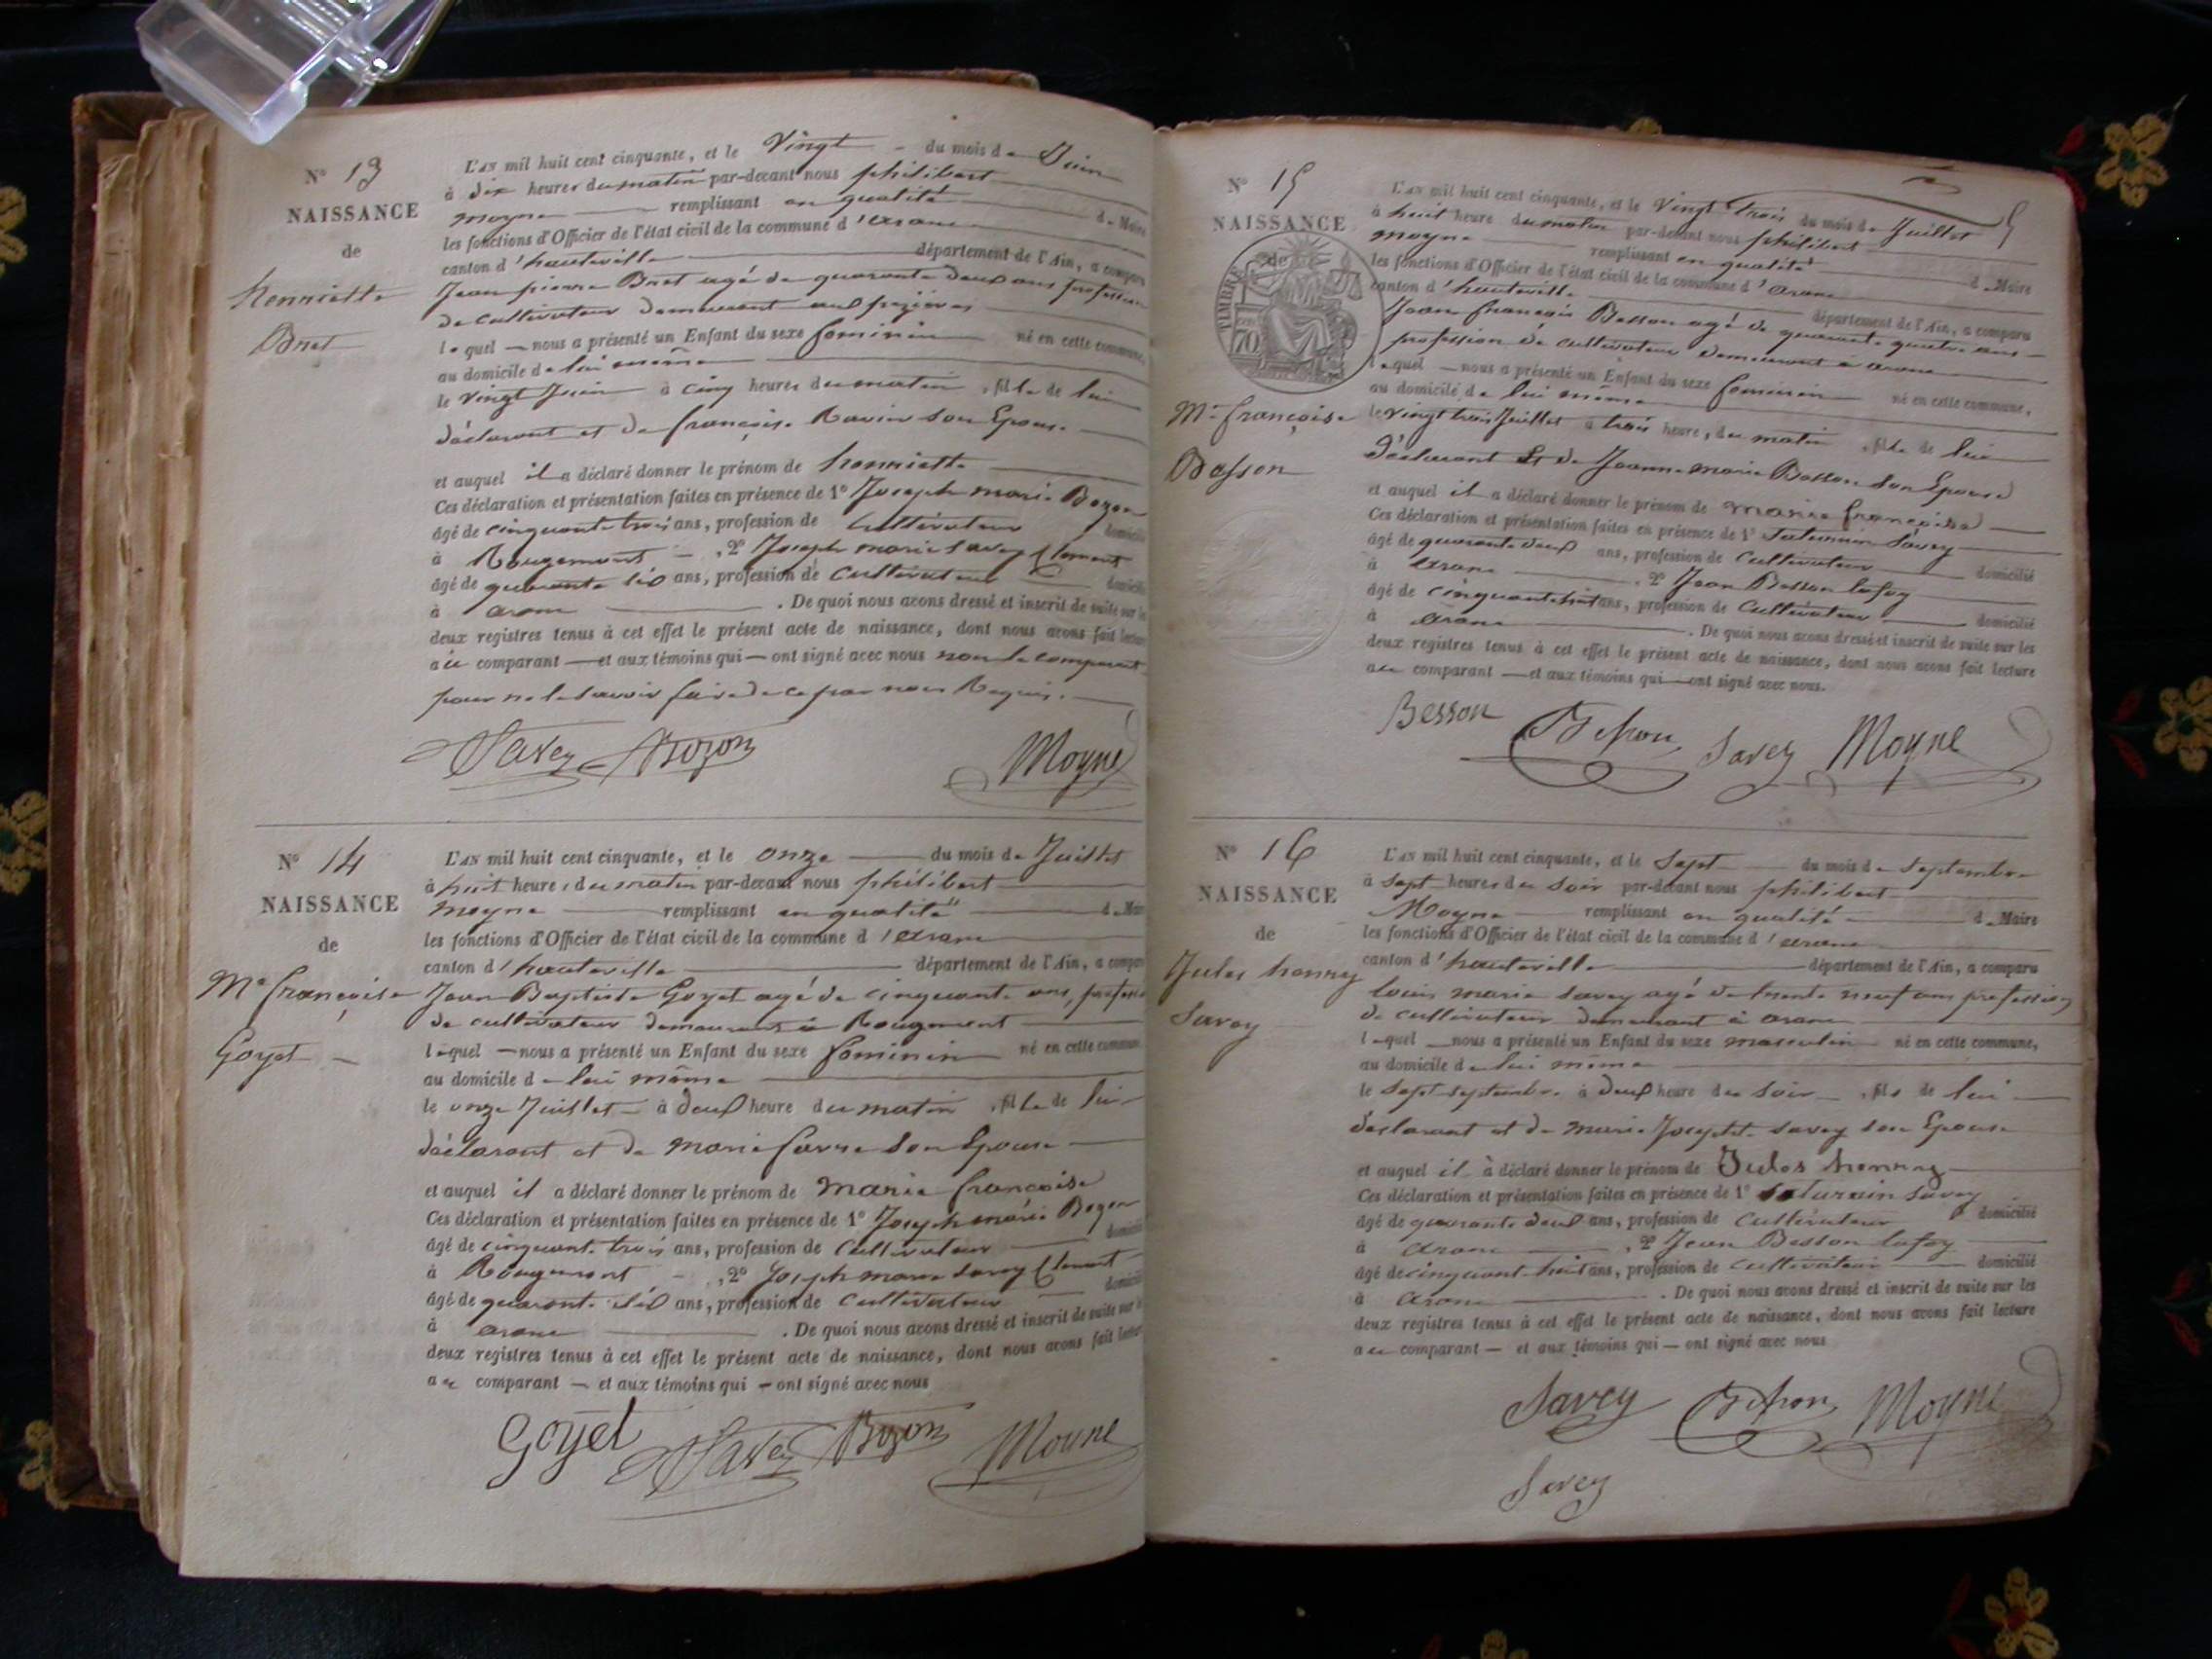 N° 13
NAISSANCE
de
henriette
Bret
L'AN mil huit cent cinquante, et le Vingt du mois de Juin
à dix heures du matin par-devant nous philibert
moyne remplissant en qualité de Maire
les fonctions d'Officier de l'état civil de la commune d'arane
canton d'hauteville département de l'Ain, a comparu
Jean pierre Bret agé de quarante deux ans profession
de cultivateur demeurant aux
lequel nous a présenté un Enfant du sexe feminin né en cette commune,
au domicile de lui même
le vingt Juin à cinq heures du matin, fille de lui
déclarant et de françoise Ravin son Epouse
et auquel il a déclaré donner le prénom de henriette
Ces déclaration et présentation faites en présence de 1° Joseph marie Bozon
âgé de cinquante trois ans, profession de Cultivateur domicilié
à Rougemont, 2° Joseph marie savey Clement
âgé de quarante six ans, profession de cultivateur domicilié
à arane. De quoi nous avons dressé et inscrit de suite sur les
deux registres tenus à cet effet le présent acte de naissance, dont nous avons fait lecture
au comparant et aux témoins qui ont signé avec nous non le comparant
pour ne le savoir faire de ce par nous Requis.
Savey Bozon Moyne
N° 14
NAISSANCE
de
Me françoise
Goyet
L'AN mil huit cent cinquante, et le onze du mois de Juillet
à huit heures du matin par-devant nous philibert
moyne remplissant en qualité de Maire
les fonctions d'Officier de l'état civil de la commune d'arane
canton d'hauteville département de l'Ain, a comparu
Jean Baptiste Goyet agé de cinquante ans, profession
de cultivateur demeurant à Rougemont
lequel nous a présenté un Enfant du sexe feminin né en cette commune
au domicile de lui même
le onze Juillet à deux heure du matin, fille de lui
déclarant et de marie favre son Epouse
et auquel il a déclaré donner le prénom de marie françoise
Ces déclaration et présentation faites en présence de 1° Joseph marie Bozon
âgé de cinquante trois ans, profession de Cultivateur domicilié
à Rougemont, 2° Joseph marie savey Clement
âgé de quarante six ans, profession de cultivateur domicilié
à arane. De quoi nous avons dressé et inscrit de suite sur les
deux registres tenus à cet effet le présent acte de naissance, dont nous avons fait lecture
au comparant et aux témoins qui ont signé avec nous
Goyet Savey Bozon Moyne
N° 15
NAISSANCE
de
TIMBRE
70
Me françoise
Besson
L'AN mil huit cent cinquante, et le Vingt trois du mois de Juillet
à huit heure du matin par-devant nous philibert
moyne remplissant en qualité de Maire
les fonctions d'Officier de l'état civil de la commune d'arane
canton d'hauteville département de l'Ain, a comparu
Jean françois Besson agé de quarante quatre ans
profession de cultivateur demeurant à arane
lequel nous a présenté un Enfant du sexe feminin né en cette commune,
au domicile de lui même
le vingt trois Juillet à trois heure, du matin, fille de lui
déclarant Et de Jeanne marie Besson son Epouse
et auquel il a déclaré donner le prénom de marie françoise
Ces déclaration et présentation faites en présence de 1° Saturnin Savey
âgé de quarante deux ans, profession de Cultivateur domicilié
à arane, 2° Jean Besson lafoy
âgé de cinquante huit ans, profession de Cultivateur domicilié
à arane. De quoi nous avons dressé et inscrit de suite sur les
deux registres tenus à cet effet le présent acte de naissance, dont nous avons fait lecture
au comparant et aux témoins qui ont signé avec nous.
Besson Besson Savey Moyne
N° 16
NAISSANCE
de
Jules henry
Savey
L'AN mil huit cent cinquante, et le Sept du mois de Septembre
à Sept heures du Soir par-devant nous philibert
Moyne remplissant en qualité de Maire
les fonctions d'Officier de l'état civil de la commune d'arane
canton d'hauteville département de l'Ain, a comparu
louis marie savey agé de trente neuf ans profession
de cultivateur demeurant à arane
lequel nous a présenté un Enfant du sexe masculin né en cette commune,
au domicile de lui même
le Sept septembre à deux heure du Soir, fils de lui
déclarant et de marie Josephte savey son Epouse
et auquel il a déclaré donner le prénom de Jules henry
Ces déclaration et présentation faites en présence de 1° saturnin savey
âgé de quarante deux ans, profession de Cultivateur domicilié
à arane, 2° Jean Besson lafoy
âgé de cinquante huit ans, profession de cultivateur domicilié
à arane. De quoi nous avons dressé et inscrit de suite sur les
deux registres tenus à cet effet le présent acte de naissance, dont nous avons fait lecture
au comparant et aux témoins qui ont signé avec nous
Savey Besson Moyne
Savey